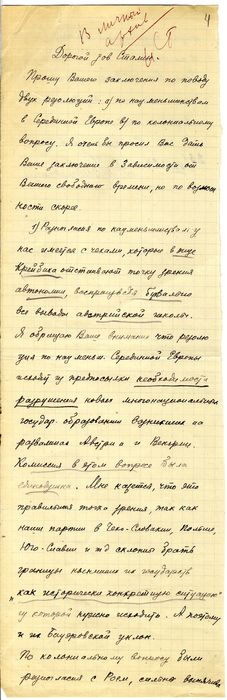 В личный
архив
4
Дорогой тов Сталин
Прошу Вашего заключения по поводу
двух резолюций: а) по нацменьшинствам
в Серединной Европе в) по колониальному
вопросу. Я очень бы просил Вас дать
Ваше заключение в зависимости от
Вашего свободного времени, но по возмож
ности скорее.
Разногласия по нацменьшинствам у
нас имеется с чехами, которые в лице
Крейбиха отстаивают точку зрения
автономии,
все выводы австрийской школы.
Я обращаю Ваше внимание что резолю
ция по нацменьш. Серединной Европы
исходит из предпосылки необходимости
разрушения новых многонациональных
государ. образований возникших на
развалинах Австрии и Венгрии.
Комиссия в этом вопросе была
единодушна. Мне кажется, что это
правильная точка зрения, так как
наши партии в Чехо-Словакии, Польше,
Юго-Славии и т д склонны брать
границы нынешних их государств
"как исторически конкретную ситуацию"
из которой нужно исходить. А поэтому
и их Бауеровский уклон.
По колониальному вопросу были
разногласия с Рой,